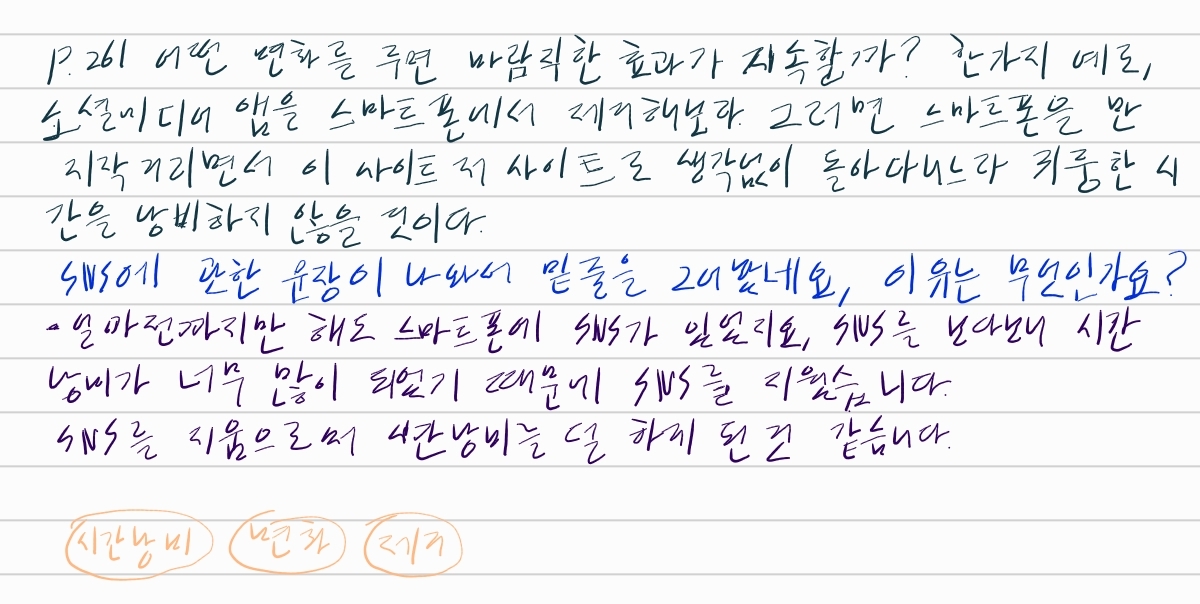 P. 261 어떤 변화를 주면 바람직한 효과가 지속할까? 한가지 예로,
소셜미디어 앱을 스마트폰에서 제거해보라. 그러면 스마트폰을 만
지작거리면서 이 사이트 저 사이트로 생각없이 돌아다니느라 귀중한 시
간을 낭비하지 않을 것이다.
SNS에 관한 문장이 나와서 밑줄을 그어놨네요, 이유는 무엇인가요?
· 얼마전까지만 해도 스마트폰에 SNS가 있었지요, SNS를 보다보니 시간
낭비가 너무 많이 되었기 때문에 SNS를 지웠습니다.
SNS를 지움으로써 시간낭비는 덜 하게 된 것 같습니다.
시간낭비 변화 제거